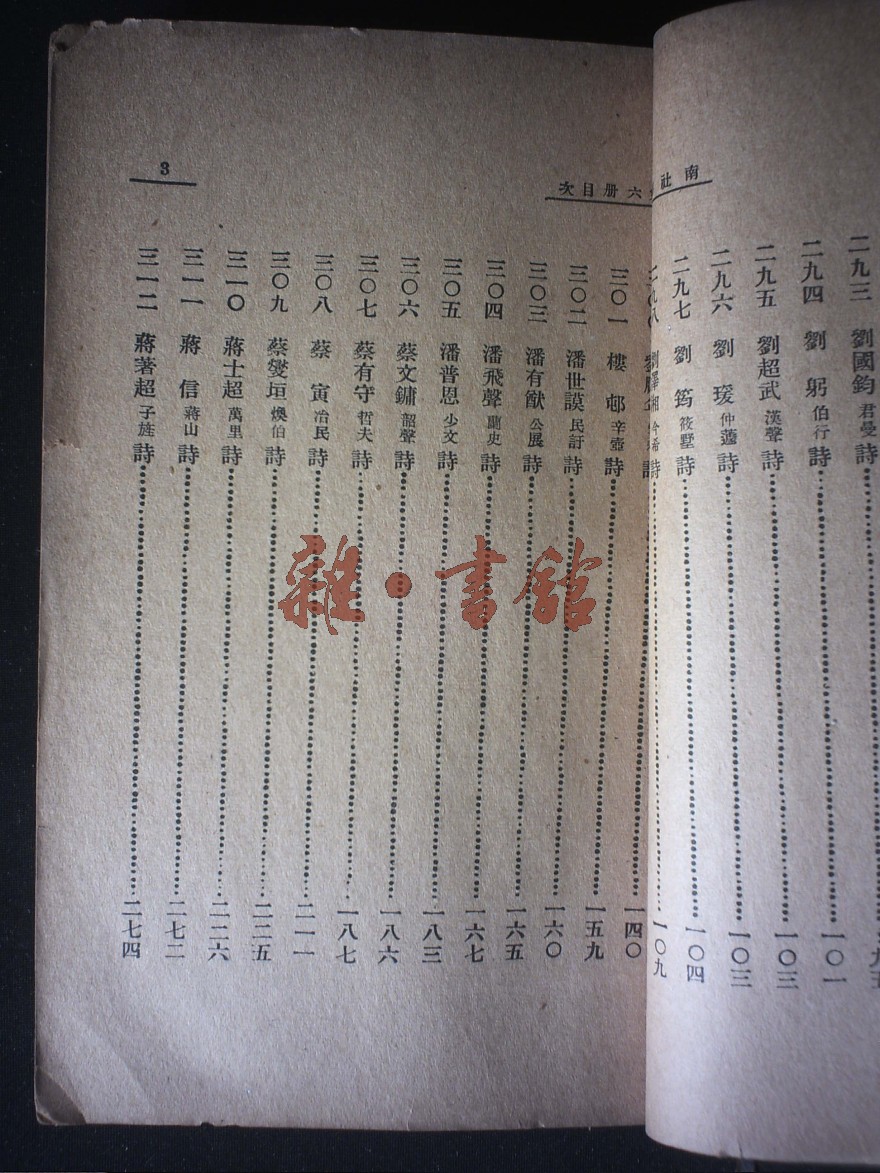 南社
六册目次
3
二九三 劉國鈞 君曼 詩
二九四 劉躬 伯行 詩……一〇一
二九五 劉超武 漢聲 詩……一〇三
二九六 劉瑗 仲蘧 詩……一〇三
二九七 劉筠 筱墅 詩……一〇四
二九八 劉澤湘 今希 詩……一〇九
詩……一四〇
三〇一 樓邨 辛壺 詩……一五九
三〇二 潘世謨 民訏 詩……一六〇
三〇三 潘有猷 公展 詩……一六五
三〇四 潘飛聲 蘭史 詩……一六七
三〇五 潘普恩 少文 詩……一八三
三〇六 蔡文鏞 韶聲 詩……一八六
三〇七 蔡有守 哲夫 詩……一八七
三〇八 蔡寅 冶民 詩……二一一
三〇九 蔡爕垣 燠伯 詩……二二五
三一〇 蔣士超 萬里 詩……二二六
三一一 蔣信 蔣山 詩……二七二
三一二 蔣著超 子旌 詩……二七四
雜·書館